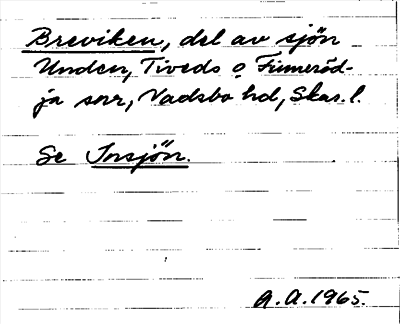 Breviken, del av sjön
Unden, Tiveds o Finneröd-
ja snr, Vadsbo hd, Skar. l.
Se Insjön.
A.A. 1965.